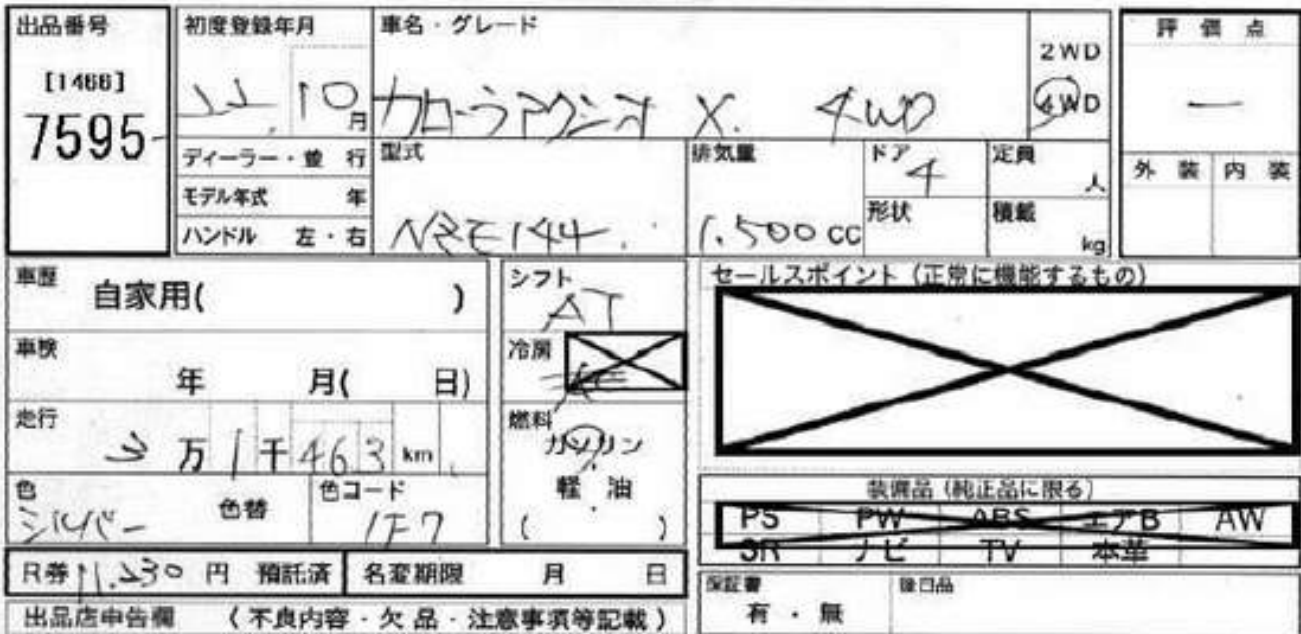 出品番号
[1466]
7595
初度登録年月
22 10月
車名・グレード
カローラアクシオ X. 4WD
2WD
4WD
評価点
—
外装 内装
ディーラー・並行
モデル年式 年
ハンドル 左・右
型式
NZE144
排気量
1.500cc
ドア
4
形状
定員
人
積載
kg
車歴
自家用( )
車検
年 月( 日)
走行
万1千463km
色
シルバー
色替
色コード
1F7
シフト
AT
冷房
燃料
ガソリン
軽油
( )
セールスポイント(正常に機能するもの)
装備品(純正品に限る)
PS PW ABS エアB AW
SR ナビ TV 本革
R券 11.230円 預託済
名変期限 月 日
保証書
有・無
後日品
出品店申告欄 (不良内容・欠品・注意事項等記載)